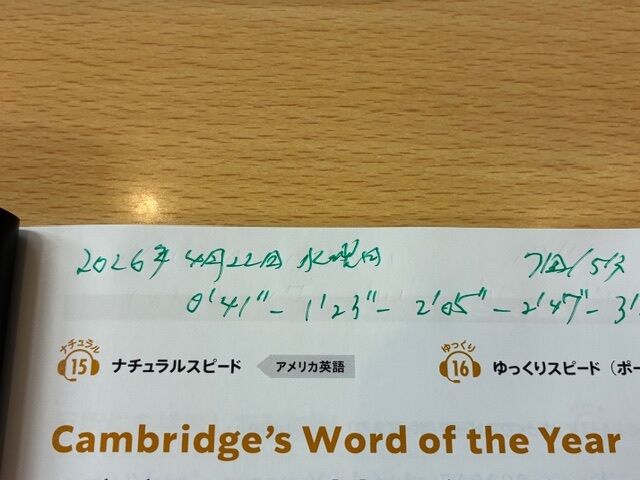 2026年 4月22日 水曜日 7回/5分
0'41" - 1'23" - 2'05" - 2'47" - 3'
ナチュラル ゆっくり
15 ナチュラルスピード アメリカ英語 16 ゆっくりスピード（ポー
Cambridge's Word of the Year